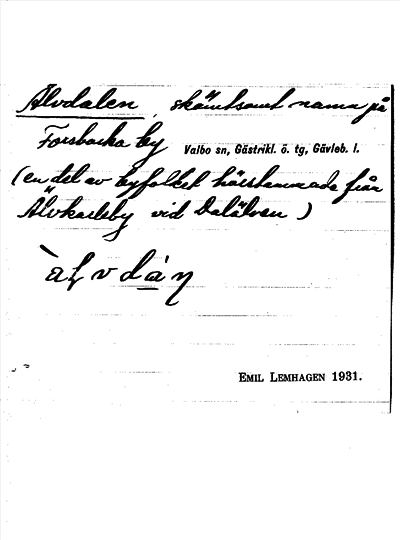 Älvdalen, skämtsamt namn på
Forsbacka by Valbo sn, Gästrikl. ö. tg, Gävleb. l.
(en del av byfolket härstammade från
Älvkarleby vid Dalälven)
EMIL LEMHAGEN 1931.